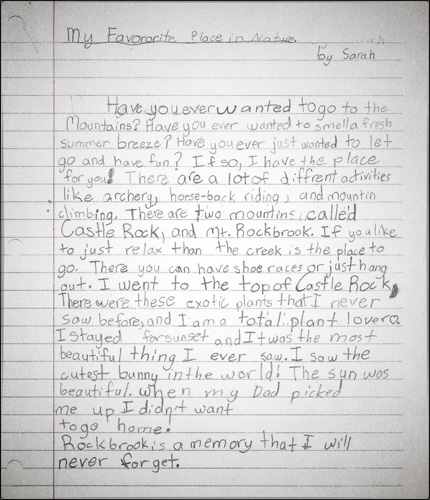 My Favororite Place in Nature.
by Sarah
Have you ever wanted to go to the
Mountains? Have you ever wanted to smell a fresh
summer breeze? Have you ever just wanted to let
go and have fun? If so, I have the place
for you! There are a lot of diffrent activities
like archery, horse-back riding, and mountin
climbing. There are two mountins, called
Castle Rock, and Mt. Rockbrook. If you like
to just relax than the creek is the place to
go. There you can have shoe races or just hang
out. I went to the top of Castle Rock,
There were these exotic plants that I never
saw before, and I am a total plant lover.
I stayed for sunset and It was the most
beautiful thing I ever saw. I saw the
cutest bunny in the world! The sun was
beautiful. When my Dad picked
me up I didn't want
to go home!
Rockbrook is a memory that I will
never forget.